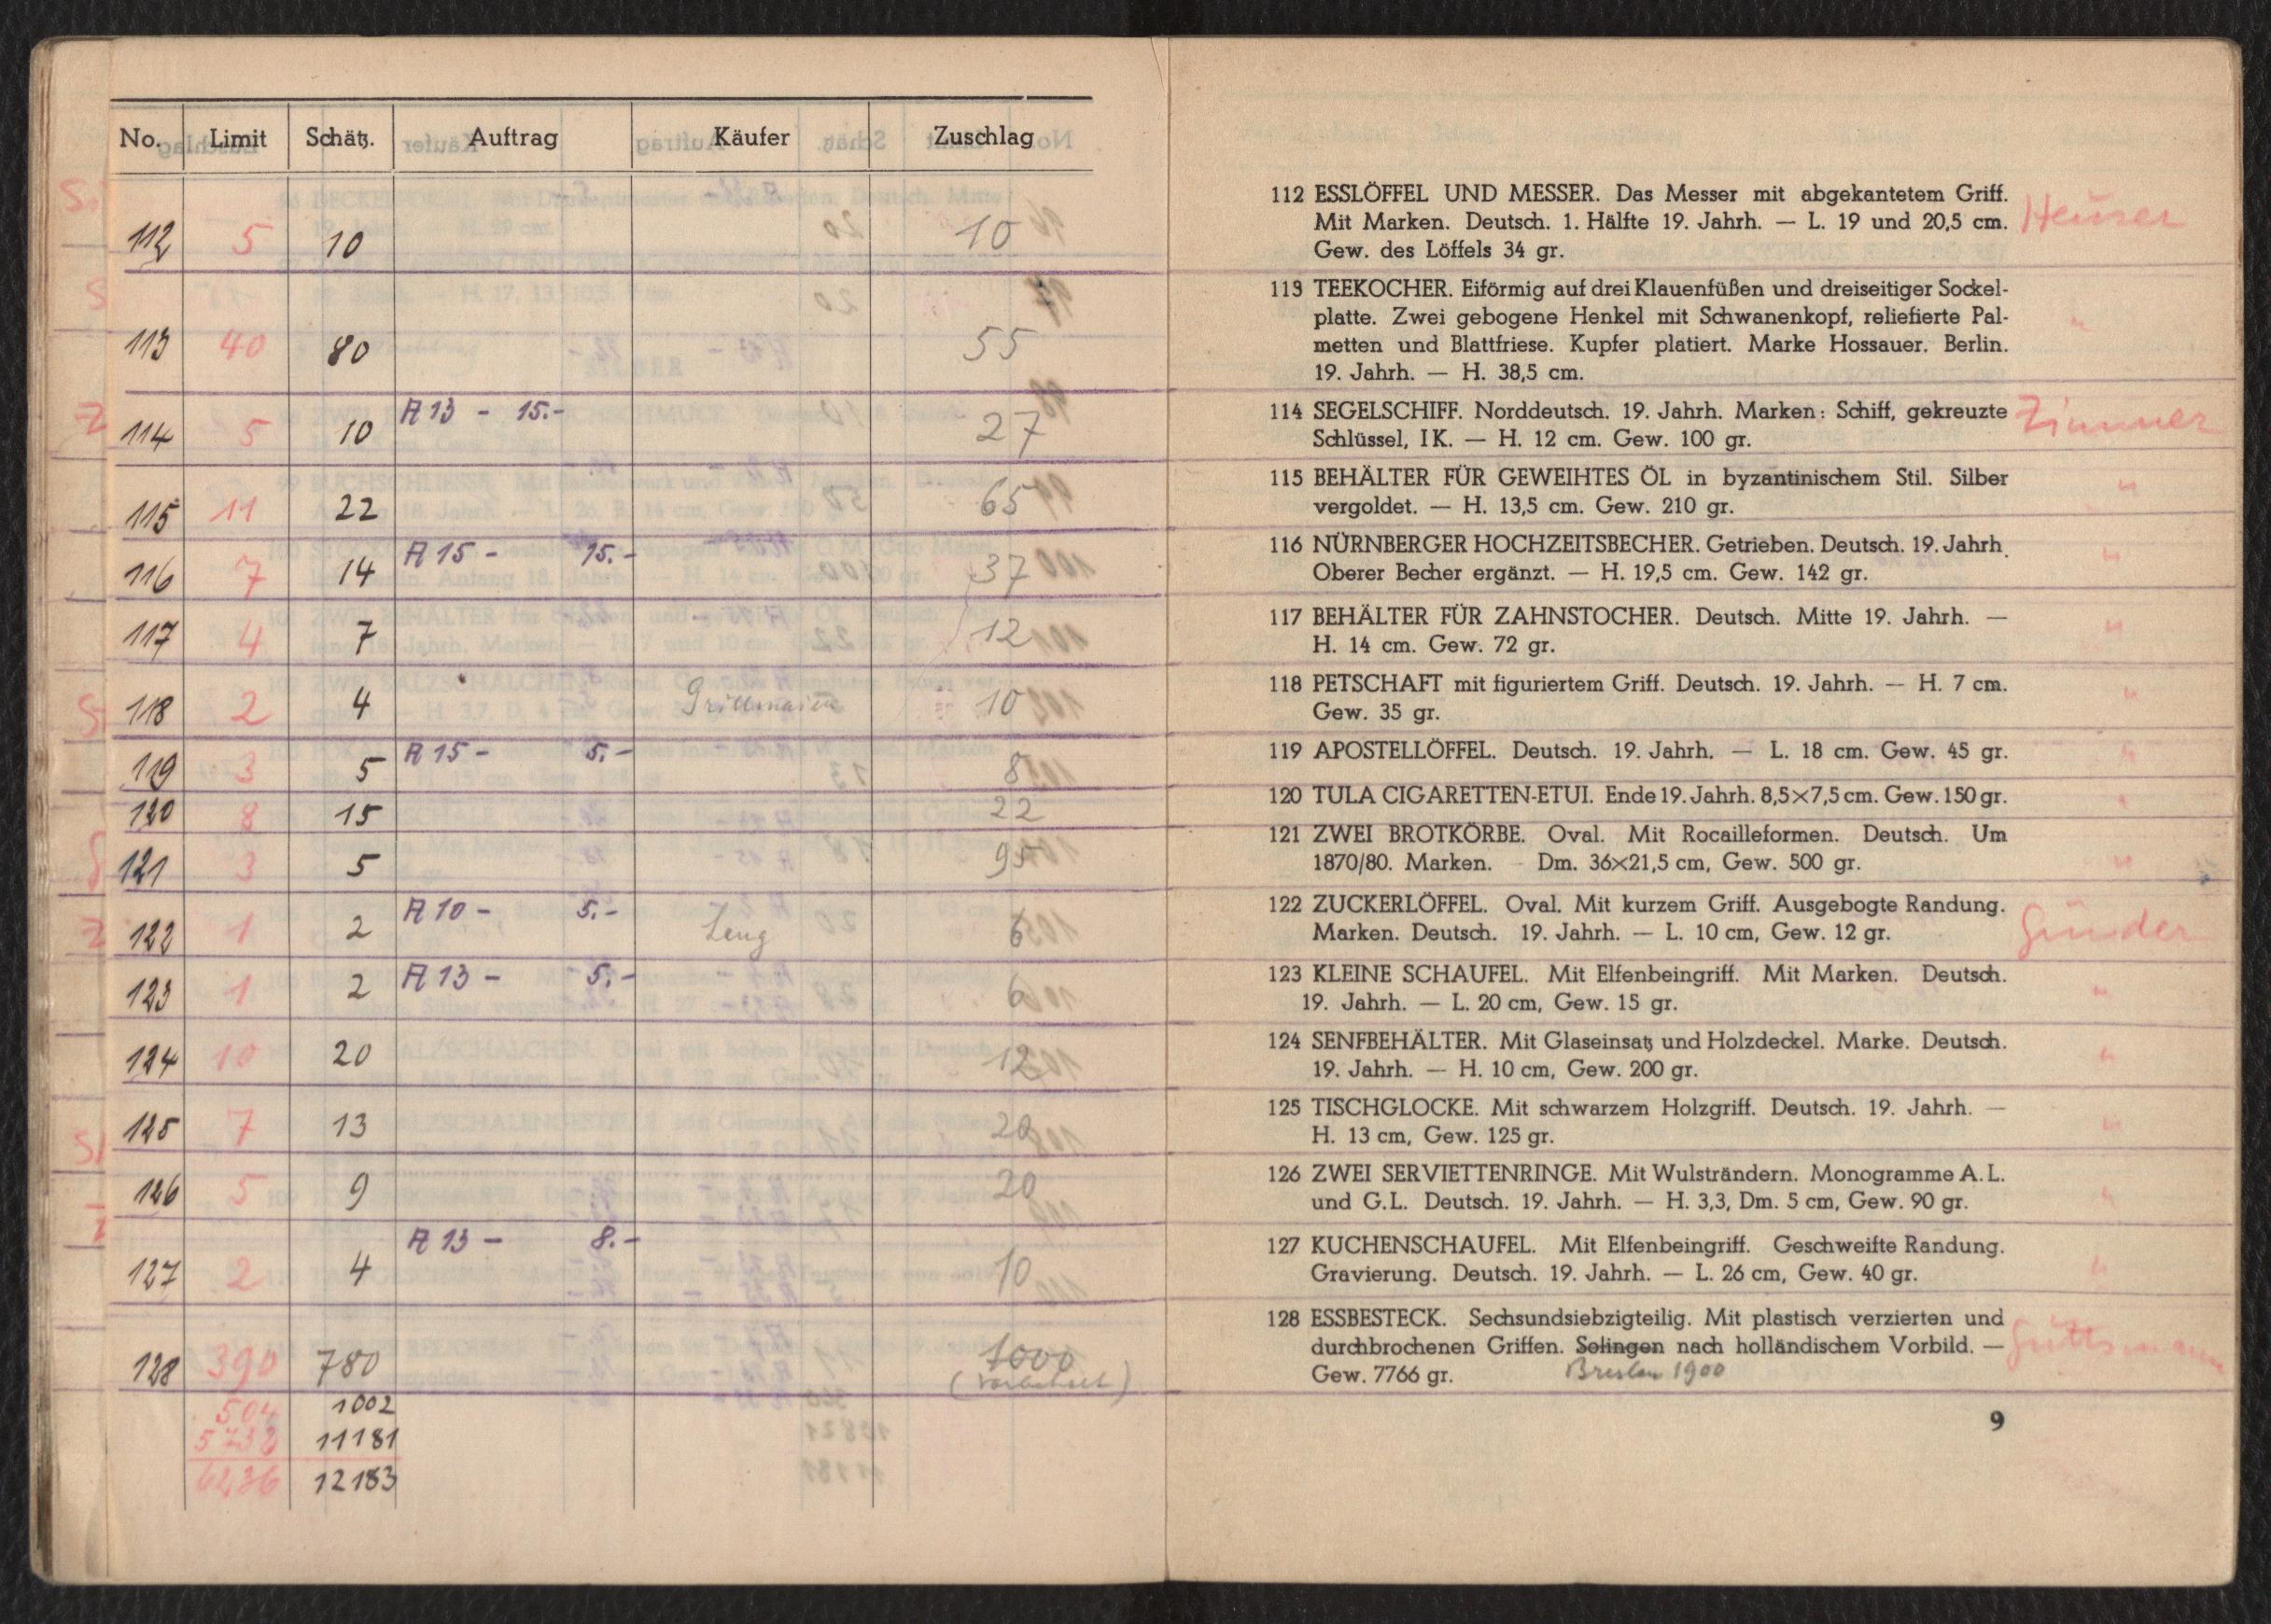 No. Limit Schätz. Auftrag Käufer Zuschlag
112 5 10 10
113 40 80 55
114 5 10 A 13 - 15.- 27
115 11 22 65
116 7 14 A 15 - 15.- 37
117 4 7 12
118 2 4 10
119 3 5 A 15 - 5.- 8
120 8 15 22
121 3 5 95
122 1 2 A 10 - 5.- Leng 6
123 1 2 A 13 - 5.- 6
124 10 20 12
125 7 13 20
126 5 9 20
127 2 4 A 13 - 8.- 10
128 390 780 1000
504 1002
5732 11181
6236 12183
112 ESSLÖFFEL UND MESSER. Das Messer mit abgekantetem Griff. Heuser
Mit Marken. Deutsch. 1. Hälfte 19. Jahrh. — L. 19 und 20,5 cm.
Gew. des Löffels 34 gr.
113 TEEKOCHER. Eiförmig auf drei Klauenfüßen und dreiseitiger Sockel-
platte. Zwei gebogene Henkel mit Schwanenkopf, reliefierte Pal- "
metten und Blattfriese. Kupfer platiert. Marke Hossauer. Berlin.
19. Jahrh. — H. 38,5 cm.
114 SEGELSCHIFF. Norddeutsch. 19. Jahrh. Marken: Schiff, gekreuzte Zimmer
Schlüssel, IK. — H. 12 cm. Gew. 100 gr.
115 BEHÄLTER FÜR GEWEIHTES ÖL in byzantinischem Stil. Silber "
vergoldet. — H. 13,5 cm. Gew. 210 gr.
116 NÜRNBERGER HOCHZEITSBECHER. Getrieben. Deutsch. 19. Jahrh. "
Oberer Becher ergänzt. — H. 19,5 cm. Gew. 142 gr.
117 BEHÄLTER FÜR ZAHNSTOCHER. Deutsch. Mitte 19. Jahrh. — "
H. 14 cm. Gew. 72 gr.
118 PETSCHAFT mit figuriertem Griff. Deutsch. 19. Jahrh. — H. 7 cm. "
Gew. 35 gr.
119 APOSTELLÖFFEL. Deutsch. 19. Jahrh. — L. 18 cm. Gew. 45 gr. "
120 TULA CIGARETTEN-ETUI. Ende 19. Jahrh. 8,5×7,5 cm. Gew. 150 gr. "
121 ZWEI BROTKÖRBE. Oval. Mit Rocailleformen. Deutsch. Um
1870/80. Marken. — Dm. 36×21,5 cm, Gew. 500 gr. "
122 ZUCKERLÖFFEL. Oval. Mit kurzem Griff. Ausgebogte Randung. Günder
Marken. Deutsch. 19. Jahrh. — L. 10 cm, Gew. 12 gr.
123 KLEINE SCHAUFEL. Mit Elfenbeingriff. Mit Marken. Deutsch. "
19. Jahrh. — L. 20 cm, Gew. 15 gr.
124 SENFBEHÄLTER. Mit Glaseinsatz und Holzdeckel. Marke. Deutsch. "
19. Jahrh. — H. 10 cm, Gew. 200 gr.
125 TISCHGLOCKE. Mit schwarzem Holzgriff. Deutsch. 19. Jahrh. — "
H. 13 cm, Gew. 125 gr.
126 ZWEI SERVIETTENRINGE. Mit Wulsträndern. Monogramme A. L. "
und G. L. Deutsch. 19. Jahrh. — H. 3,3, Dm. 5 cm, Gew. 90 gr.
127 KUCHENSCHAUFEL. Mit Elfenbeingriff. Geschweifte Randung. "
Gravierung. Deutsch. 19. Jahrh. — L. 26 cm, Gew. 40 gr.
128 ESSBESTECK. Sechsundsiebzigteilig. Mit plastisch verzierten und
durchbrochenen Griffen. Solingen nach holländischem Vorbild. — Guttsmann
Gew. 7766 gr. Breslau 1900
9